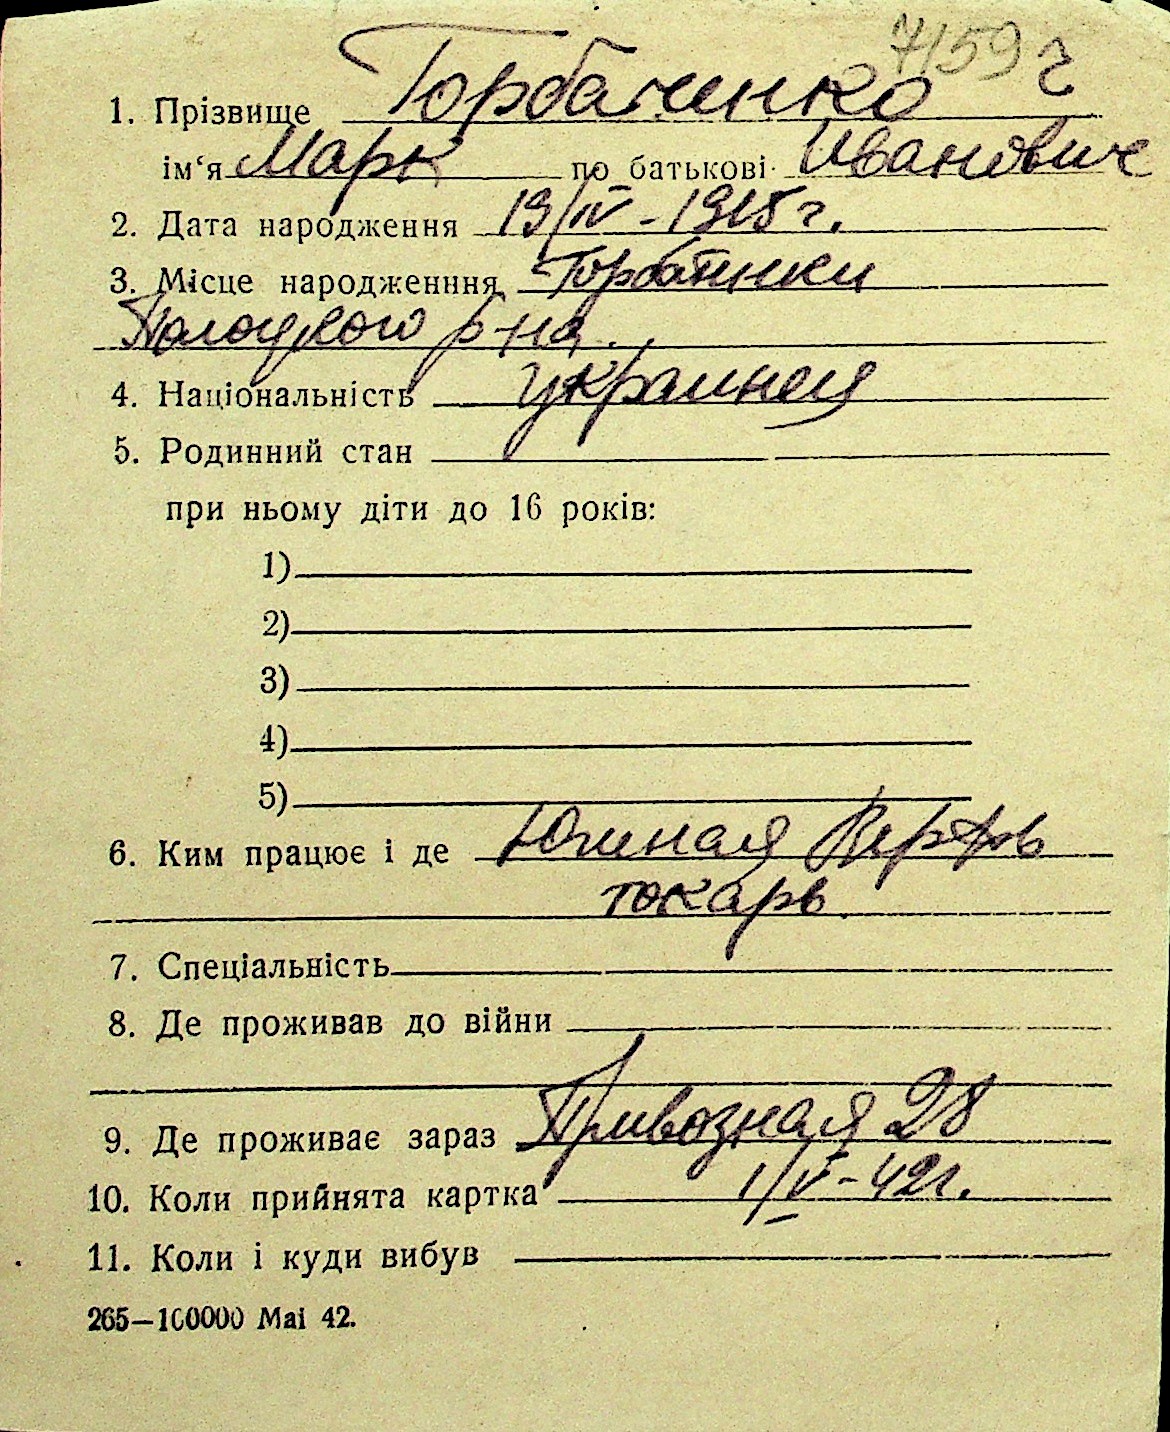 7159 г
1. Прізвище Горбаченко
ім‘я Марк по батькові Иванович
2. Дата народження 19/IV-1915г.
3. Місце народженння Горбатики
р-на.
4. Національність украинец
5. Родинний стан
при ньому діти до 16 років:
1)
2)
3)
4)
5)
6. Ким працює і де Южная
токарь
7. Спеціальність
8. Де проживав до війни
9. Де проживає зараз Привозная 28
10. Коли прийнята картка 1/V-42г.
11. Коли і куди вибув
265—100000 Mai 42.